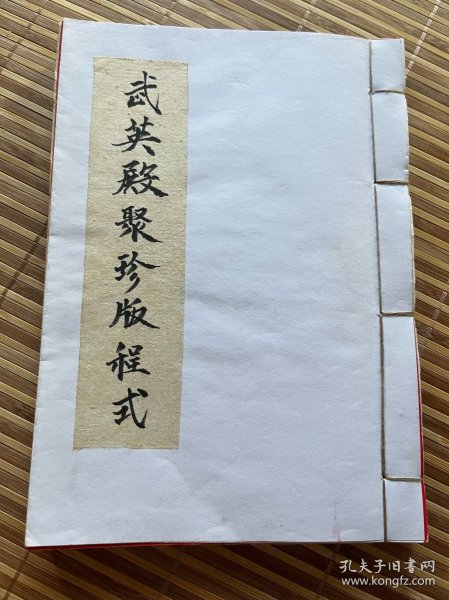 武英殿聚珍版程式
孔夫子旧书网
www.kongfz.com